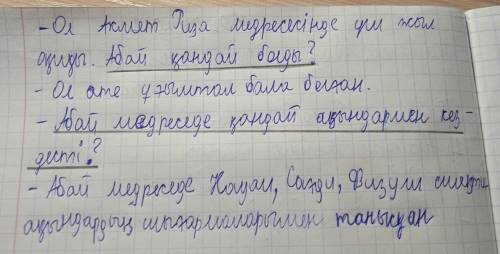 - Ол Ахмет Риза медресесінде үш жыл
оқиды. Абай қандай болды?
- Ол өте ұғымтал бала болған.
- Абай медреседе қандай ақындармен кез-
десті?
- Абай медреседе Науаи, Сағди, Физули сияқты
ақындардың шығармаларымен танысқан